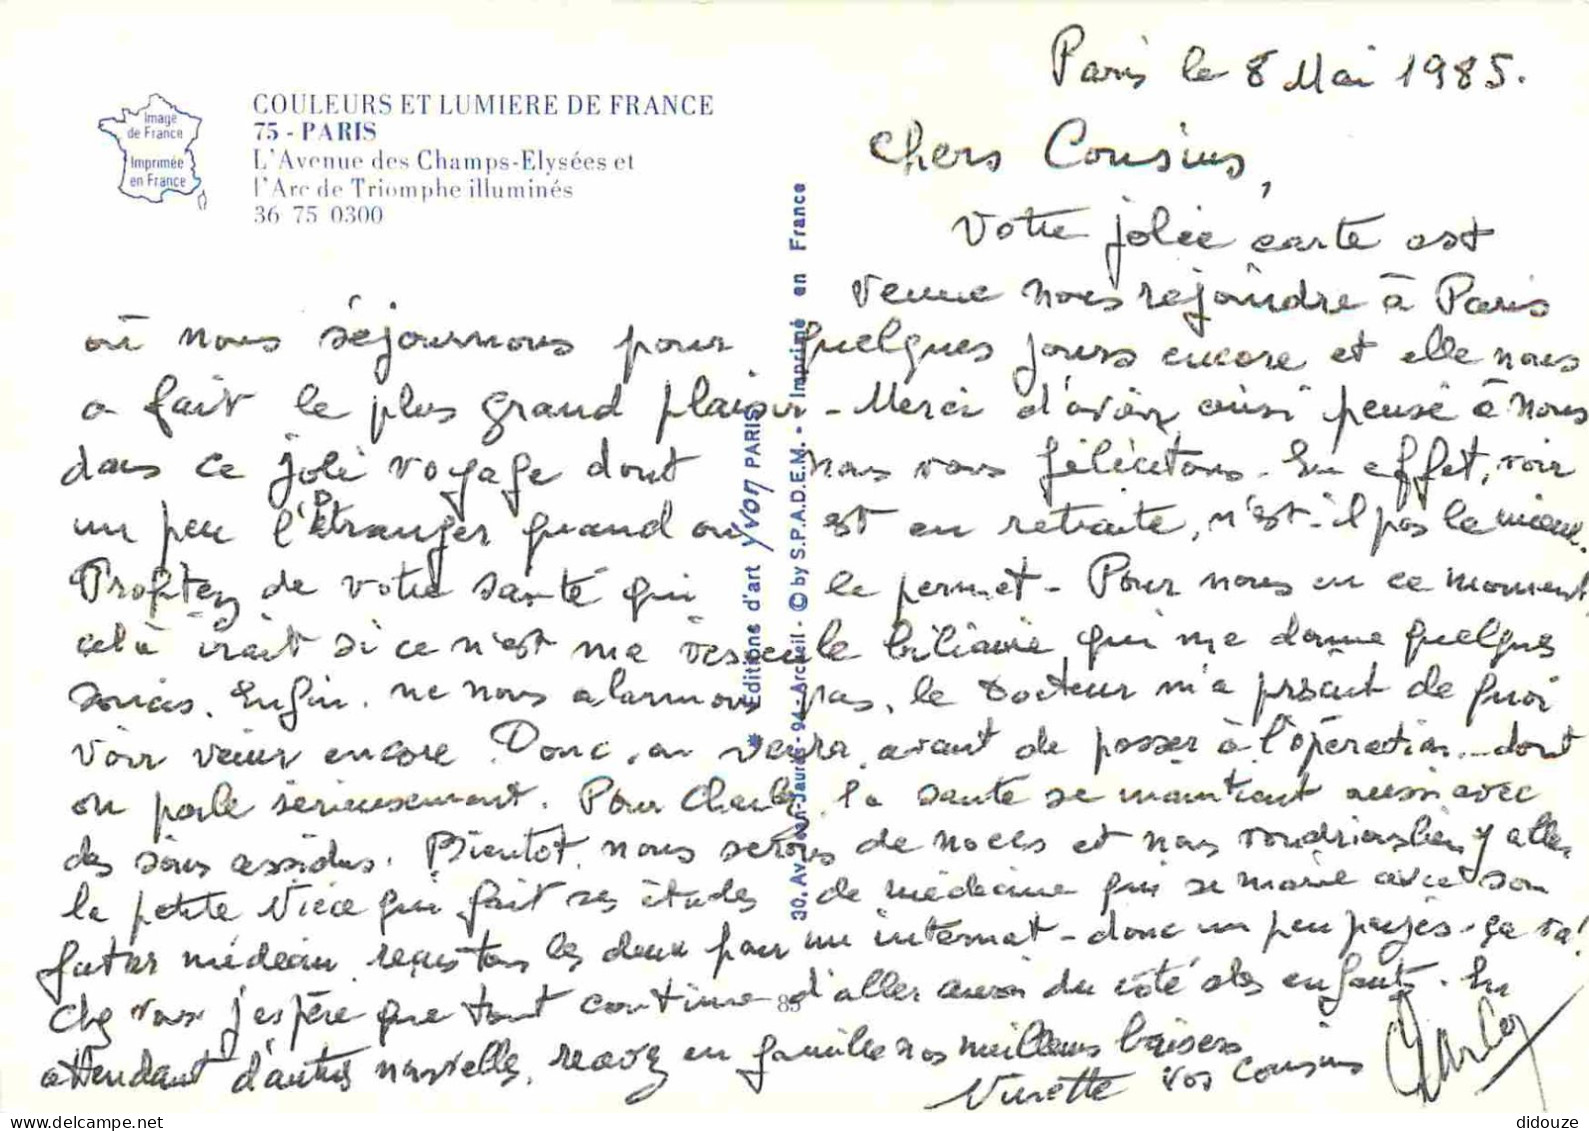 Paris le 8 Mai 1985.
Image
de France
Imprimée
en France
COULEURS ET LUMIERE DE FRANCE
75 - PARIS
L'Avenue des Champs-Elysées et
l'Arc de Triomphe illuminés
36 75 0300
Chers Cousins,
Votre jolie carte est
venue nous rejoindre à Paris
où nous séjournons pour quelques jours encore et elle nous
a fait le plus grand plaisir - Merci d'avoir ainsi pensé à nous
dans ce joli voyage dont nous vous félicitons. En effet, voir
un peu l'Etranger quand on est en retraite, n'est-il pas le mieux.
Profitez de votre santé qui le permet - Pour nous en ce moment
cela irait si ce n'est ma vésicule biliaire qui me donne quelques
soucis. Enfin, ne nous alarmons pas, le Docteur m'a prescrit de quoi
voir venir encore. Donc, on verra avant de passer à l'opération - dont
on parle sérieusement. Pour Charley, la santé se maintient aussi avec
des soins assidus. Bientôt, nous serons de noces et nous voudrions bien y aller
la petite Nièce qui fait ses études de médecine qui se marie avec son
futur médecin, reçus tous les deux pour un internat - donc un peu payés - ça va!
Chez vous j'espère que tout continue d'aller ainsi du côté des enfants. En
attendant d'autres nouvelles, recevez en famille nos meilleurs baisers
vos cousins
Ninette Charley
85
* Editions d'art yvon PARIS
30, Av. Jean-Jaurès - 94 - Arcueil - © by S.P.A.D.E.M. - Imprimé en France
didouze